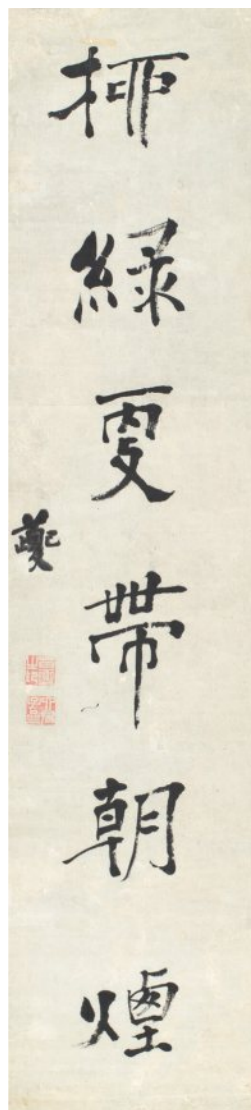 柳緑更帶朝煙
夔